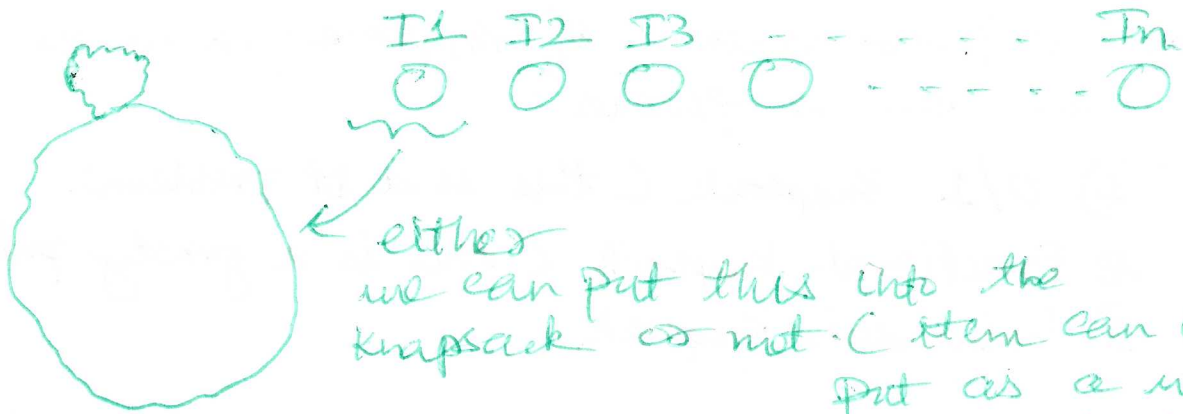 I1 I2 I3 - - - - - - In
either
we can put this into the
knapsack or not. ( item can
put as a